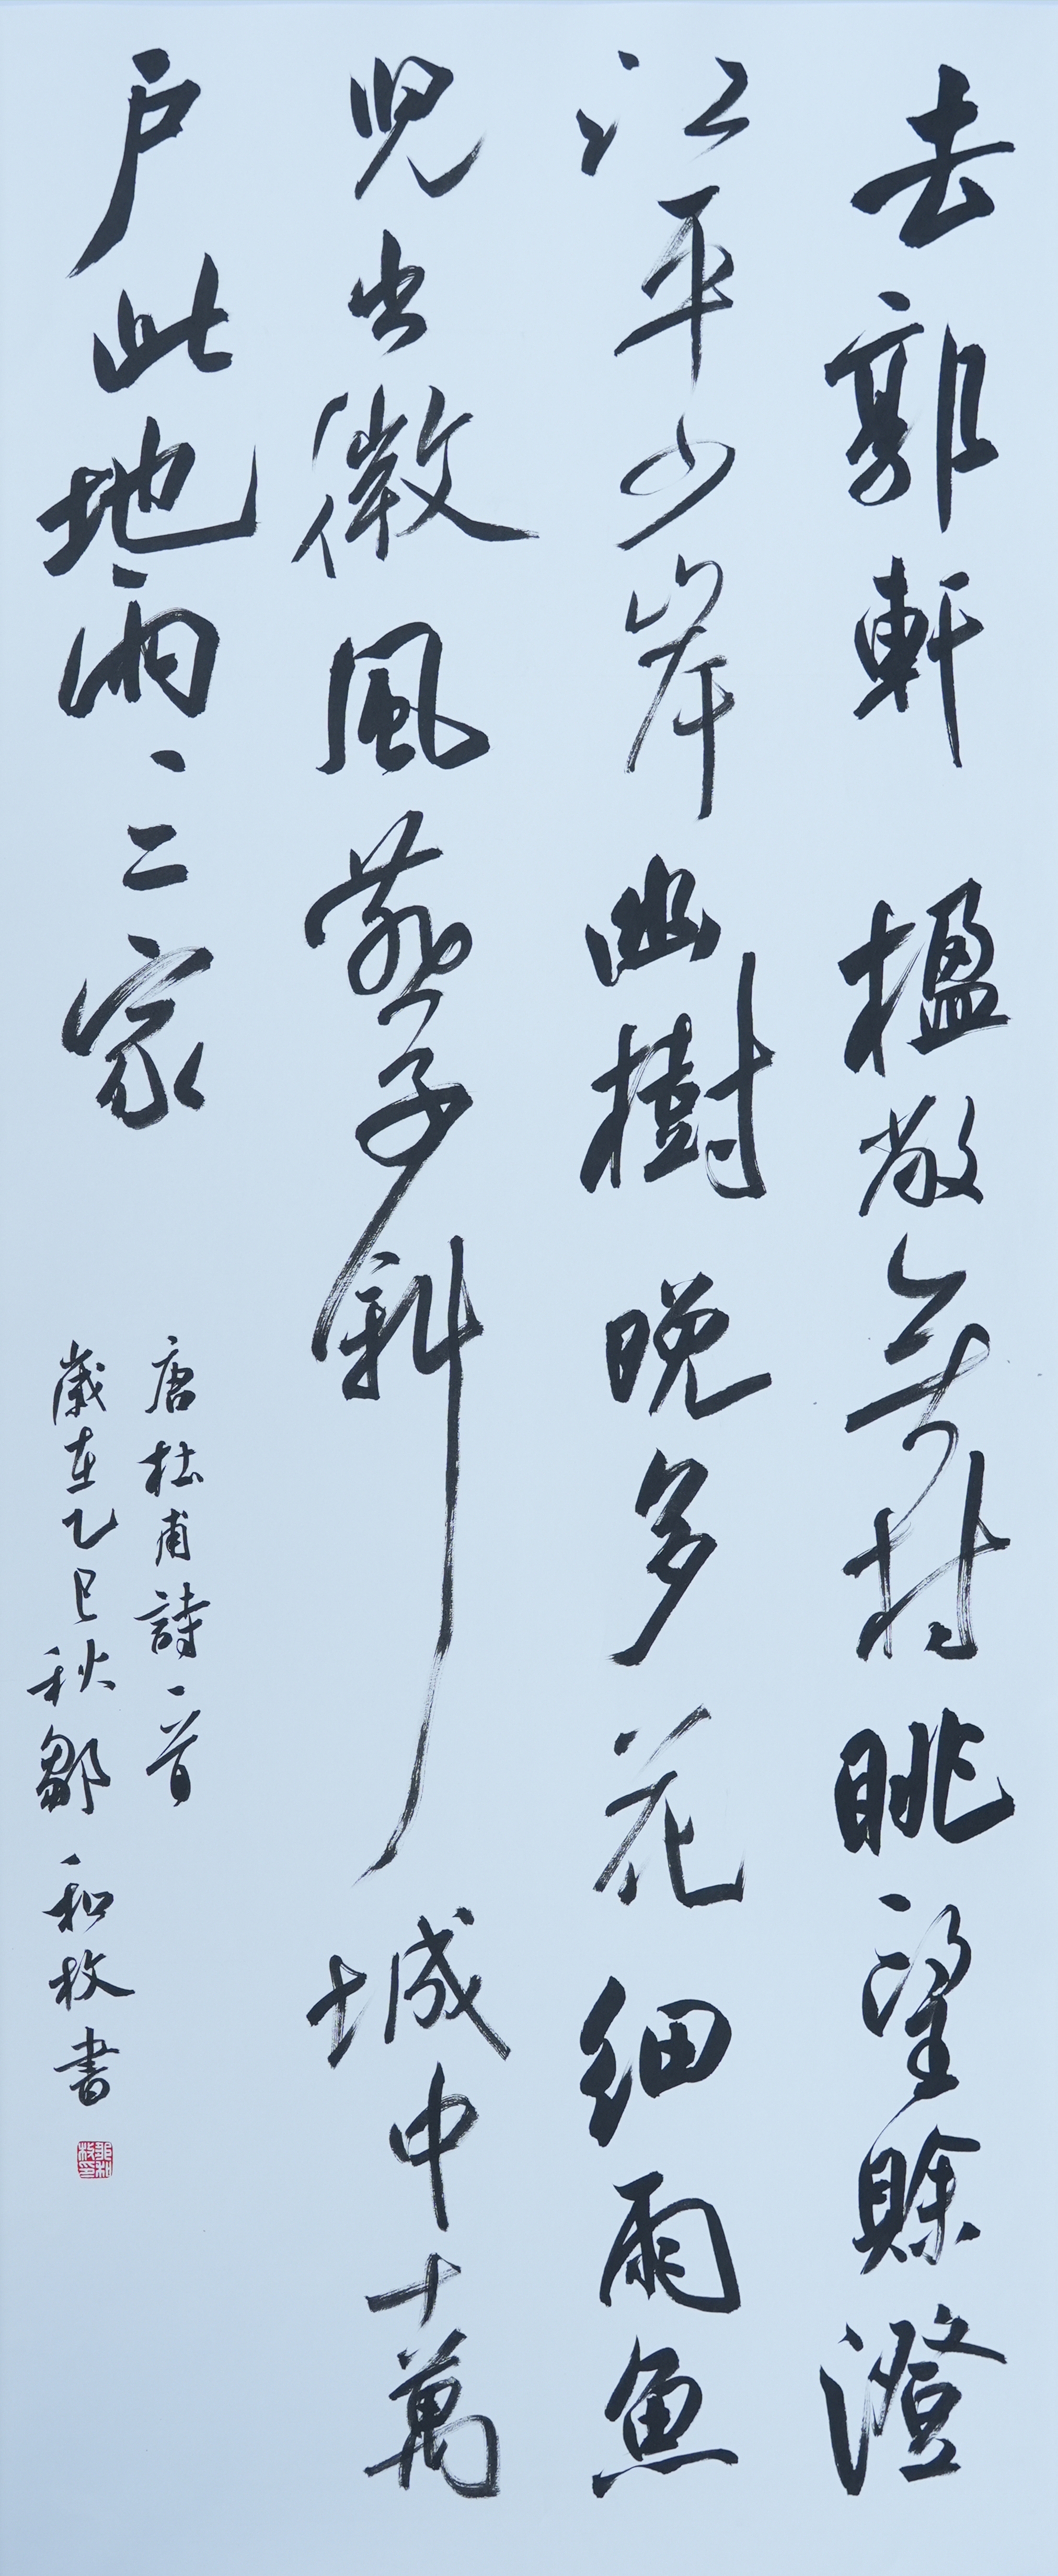 去郭軒楹敞無村眺望賒澄
江平少岸幽樹晚多花細雨魚
兒出微風燕子斜城中十萬
戶此地兩三家
唐杜甫詩一首
歲在乙巳秋鄒和枚書
鄒和枚印